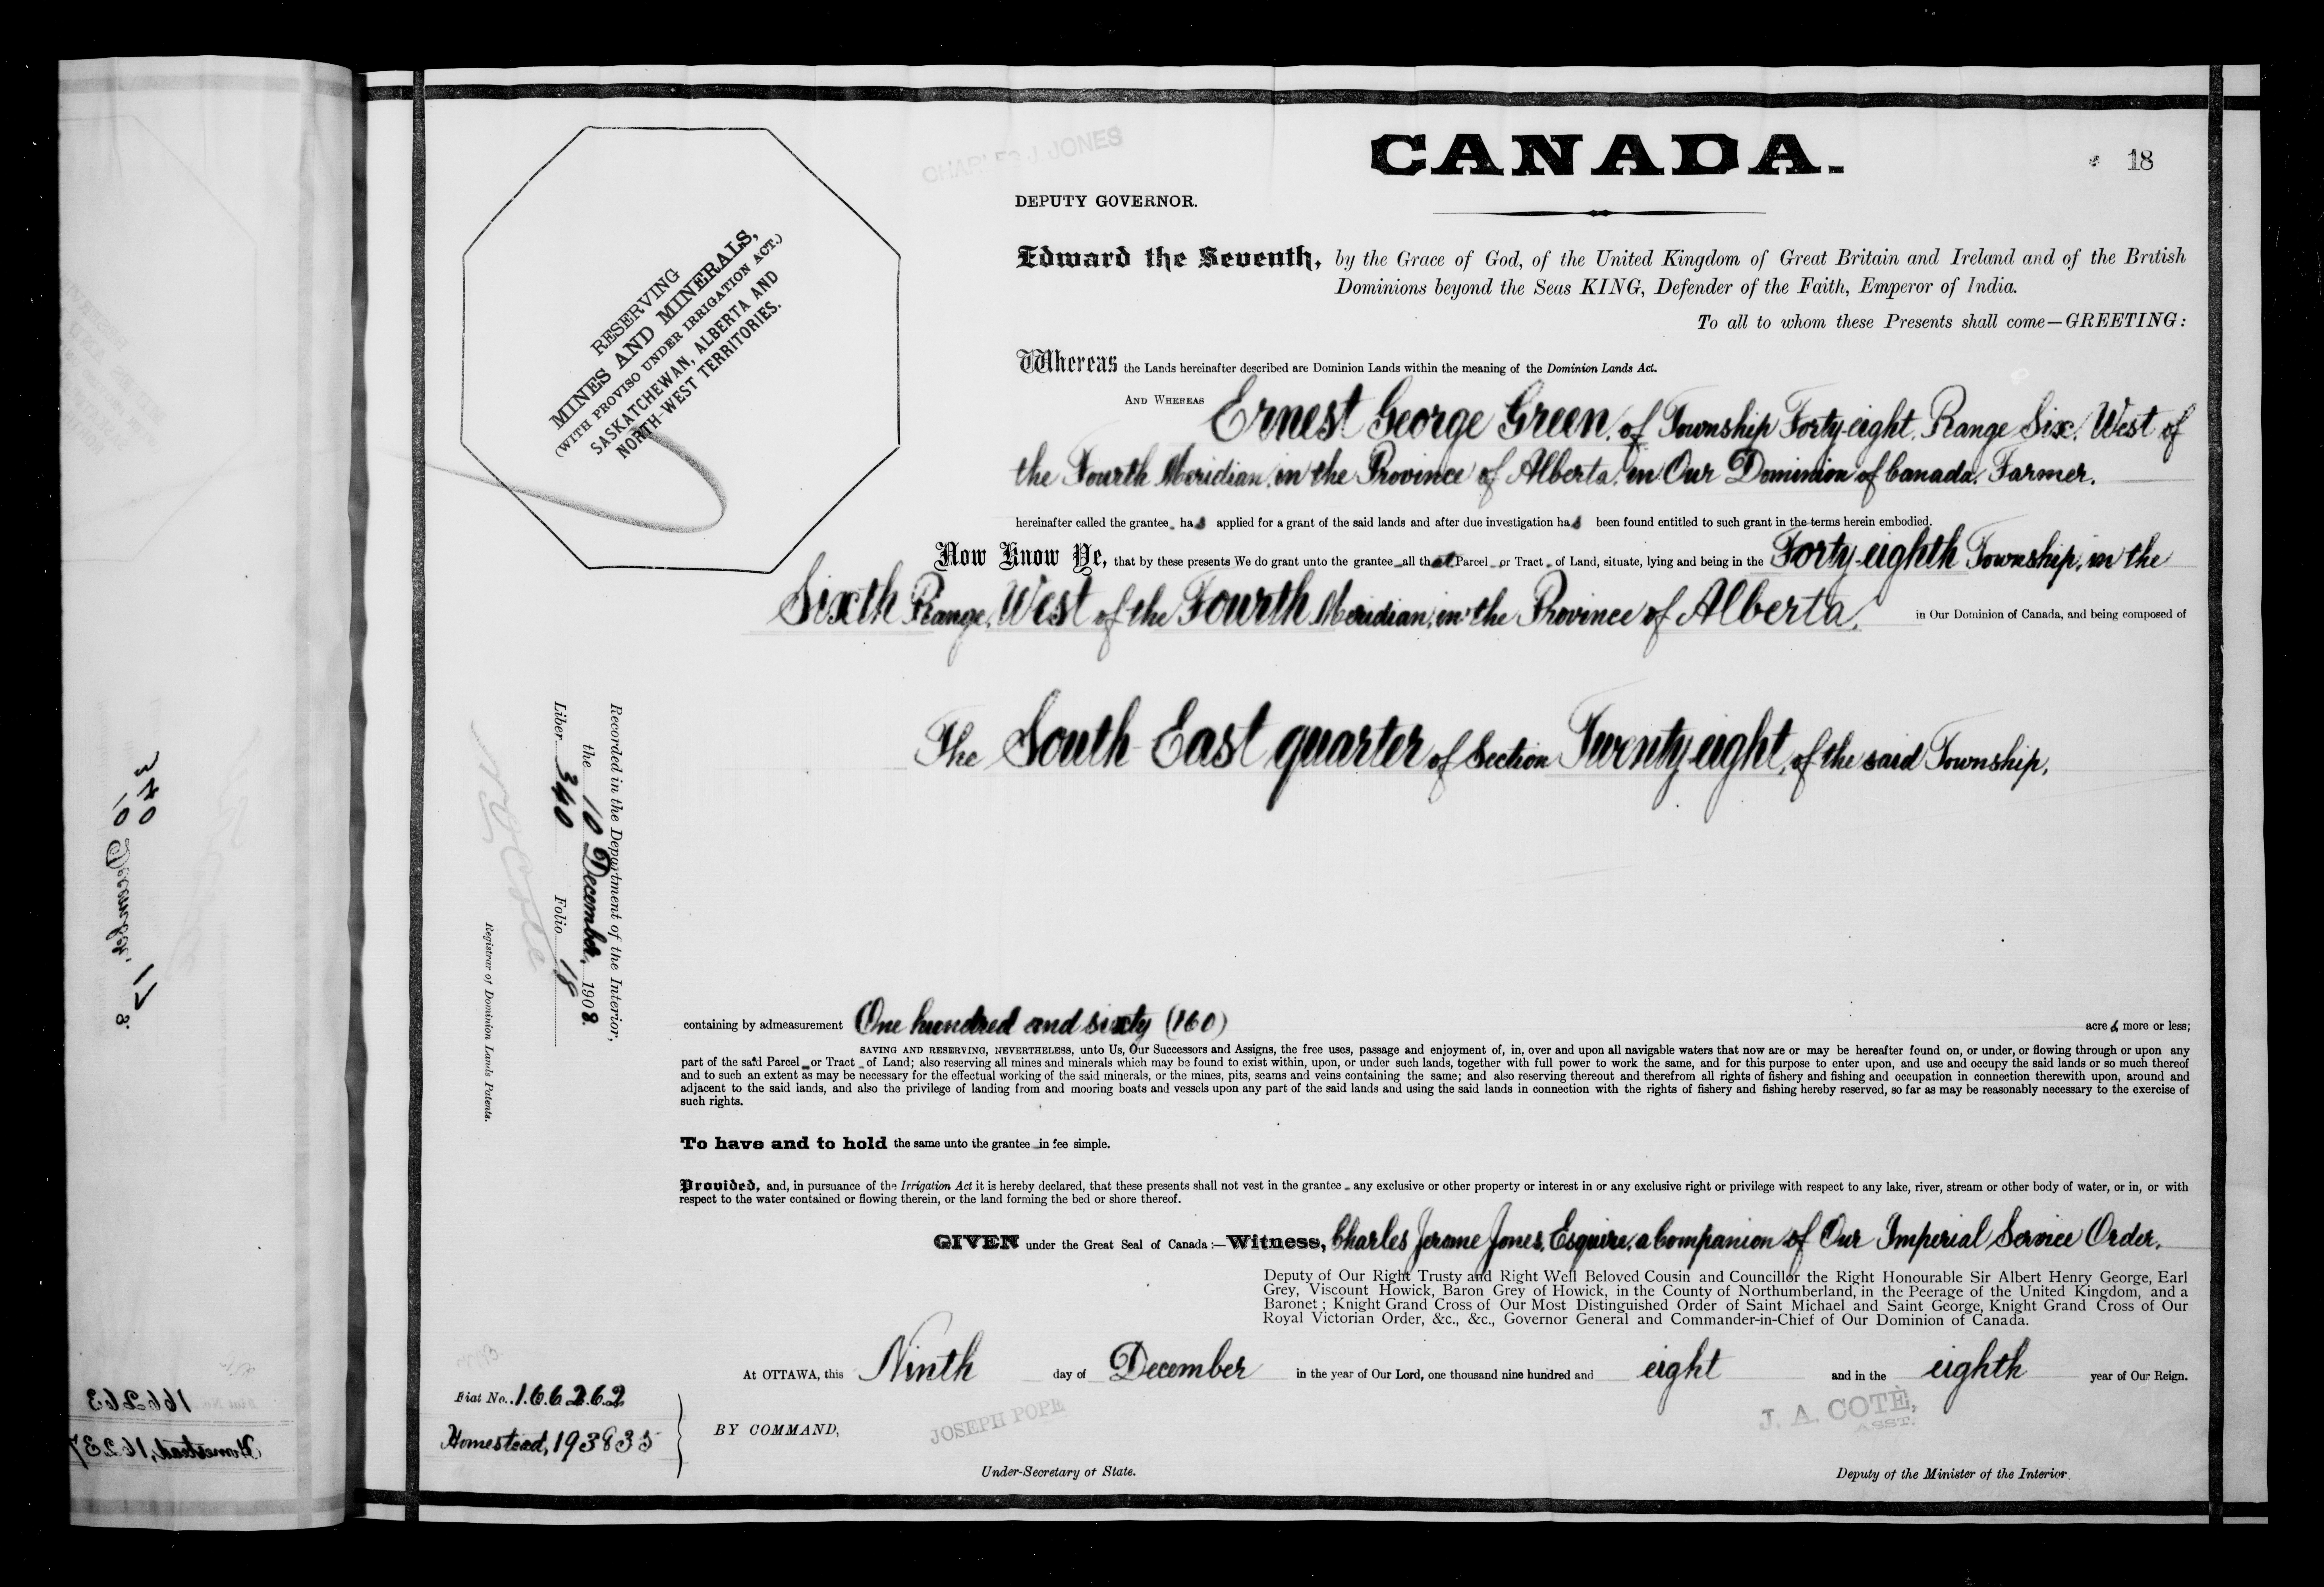 CANADA.
18
CHARLES J. JONES
DEPUTY GOVERNOR.
RESERVING
MINES AND MINERALS,
(WITH PROVISO UNDER IRRIGATION ACT.)
SASKATCHEWAN, ALBERTA AND
NORTH-WEST TERRITORIES.
Edward the Seventh, by the Grace of God, of the United Kingdom of Great Britain and Ireland and of the British
Dominions beyond the Seas KING, Defender of the Faith, Emperor of India.
To all to whom these Presents shall come—GREETING:
Whereas the Lands hereinafter described are Dominion Lands within the meaning of the Dominion Lands Act.
AND WHEREAS Ernest George Green, of Township Forty-eight, Range Six, West of
the Fourth Meridian, in the Province of Alberta, in Our Dominion of Canada, Farmer,
hereinafter called the grantee, has applied for a grant of the said lands and after due investigation has been found entitled to such grant in the terms herein embodied.
Now Know Ye, that by these presents We do grant unto the grantee all that Parcel or Tract of Land, situate, lying and being in the Forty-eighth Township, in the
Sixth Range, West of the Fourth Meridian, in the Province of Alberta, in Our Dominion of Canada, and being composed of
The South East quarter of Section Twenty-eight, of the said Township,
Recorded in the Department of the Interior,
the 10 December, 1908.
Liber 340 Folio 18
N O Coté
Registrar of Dominion Lands Patents.
containing by admeasurement One hundred and sixty (160) acres, more or less;
SAVING AND RESERVING, NEVERTHELESS, unto Us, Our Successors and Assigns, the free uses, passage and enjoyment of, in, over and upon all navigable waters that now are or may be hereafter found on, or under, or flowing through or upon any
part of the said Parcel or Tract of Land; also reserving all mines and minerals which may be found to exist within, upon, or under such lands, together with full power to work the same, and for this purpose to enter upon, and use and occupy the said lands or so much thereof
and to such an extent as may be necessary for the effectual working of the said minerals, or the mines, pits, seams and veins containing the same; and also reserving thereout and therefrom all rights of fishery and fishing and occupation in connection therewith upon, around and
adjacent to the said lands, and also the privilege of landing from and mooring boats and vessels upon any part of the said lands and using the said lands in connection with the rights of fishery and fishing hereby reserved, so far as may be reasonably necessary to the exercise of
such rights.
To have and to hold the same unto the grantee in fee simple.
Provided, and, in pursuance of the Irrigation Act it is hereby declared, that these presents shall not vest in the grantee any exclusive or other property or interest in or any exclusive right or privilege with respect to any lake, river, stream or other body of water, or in, or with
respect to the water contained or flowing therein, or the land forming the bed or shore thereof.
GIVEN under the Great Seal of Canada:—Witness, Charles Jerome Jones, Esquire, a Companion of Our Imperial Service Order,
Deputy of Our Right Trusty and Right Well Beloved Cousin and Councillor the Right Honourable Sir Albert Henry George, Earl
Grey, Viscount Howick, Baron Grey of Howick, in the County of Northumberland, in the Peerage of the United Kingdom, and a
Baronet; Knight Grand Cross of Our Most Distinguished Order of Saint Michael and Saint George, Knight Grand Cross of Our
Royal Victorian Order, &c., &c., Governor General and Commander-in-Chief of Our Dominion of Canada.
At OTTAWA, this Ninth day of December in the year of Our Lord, one thousand nine hundred and eight and in the eighth year of Our Reign.
Fiat No. 166262
Homestead, 193835
BY COMMAND,
JOSEPH POPE
Under-Secretary of State.
J. A. COTÉ,
ASST.
Deputy of the Minister of the Interior.
340
10 December, 17
8.
166263
Homestead, 16237